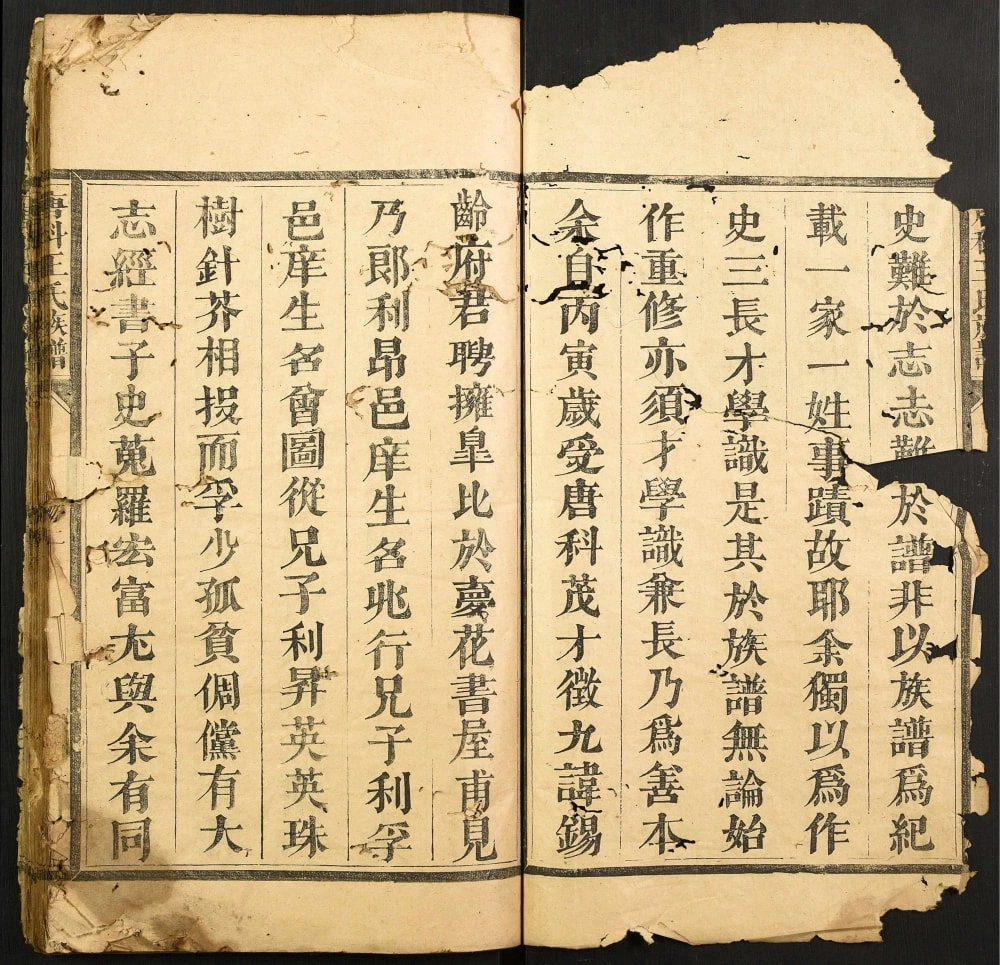 史難於志志難於譜非以族譜爲紀
載一家一姓事蹟故耶余獨以爲作
史三長才學識是其於族譜無論始
作重修亦須才學識兼長乃爲善本
余自丙寅歲受唐科茂才徵九諱錫
齡府君聘擁臯比於夢花書屋甫見
乃郎利昻邑庠生名兆行兄子利孚
邑庠生名會圖從兄子利昇英英珠
樹針芥相投而孚少孤貧倜儻有大
志經書子史蒐羅宏富尢與余有同
唐科王氏族譜